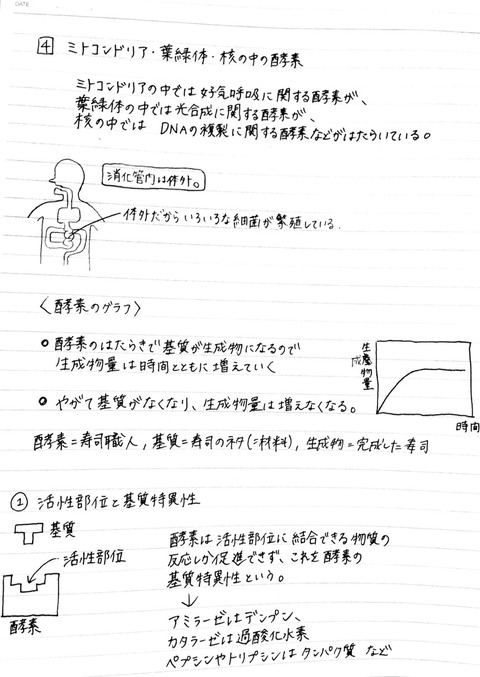 DATE
4 ミトコンドリア・葉緑体・核の中の酵素
ミトコンドリアの中では好気呼吸に関する酵素が、
葉緑体の中では光合成に関する酵素が、
核の中では DNAの複製に関する酵素などがはたらいている。
消化管内は体外。
体外だからいろいろな細菌が繁殖している.
〈酵素のグラフ〉
酵素のはたらきで基質が生成物になるので
生成物量は時間とともに増えていく
やがて基質がなくなり、生成物量は増えなくなる。
生成物量
時間
酵素=寿司職人, 基質=寿司のネタ(=材料), 生成物=完成した寿司
① 活性部位と基質特異性
基質
活性部位
酵素
酵素は活性部位に結合できる物質の
反応しか促進できず、これを酵素の
基質特異性という。
↓
アミラーゼはデンプン、
カタラーゼは過酸化水素
ペプシンやトリプシンはタンパク質 など